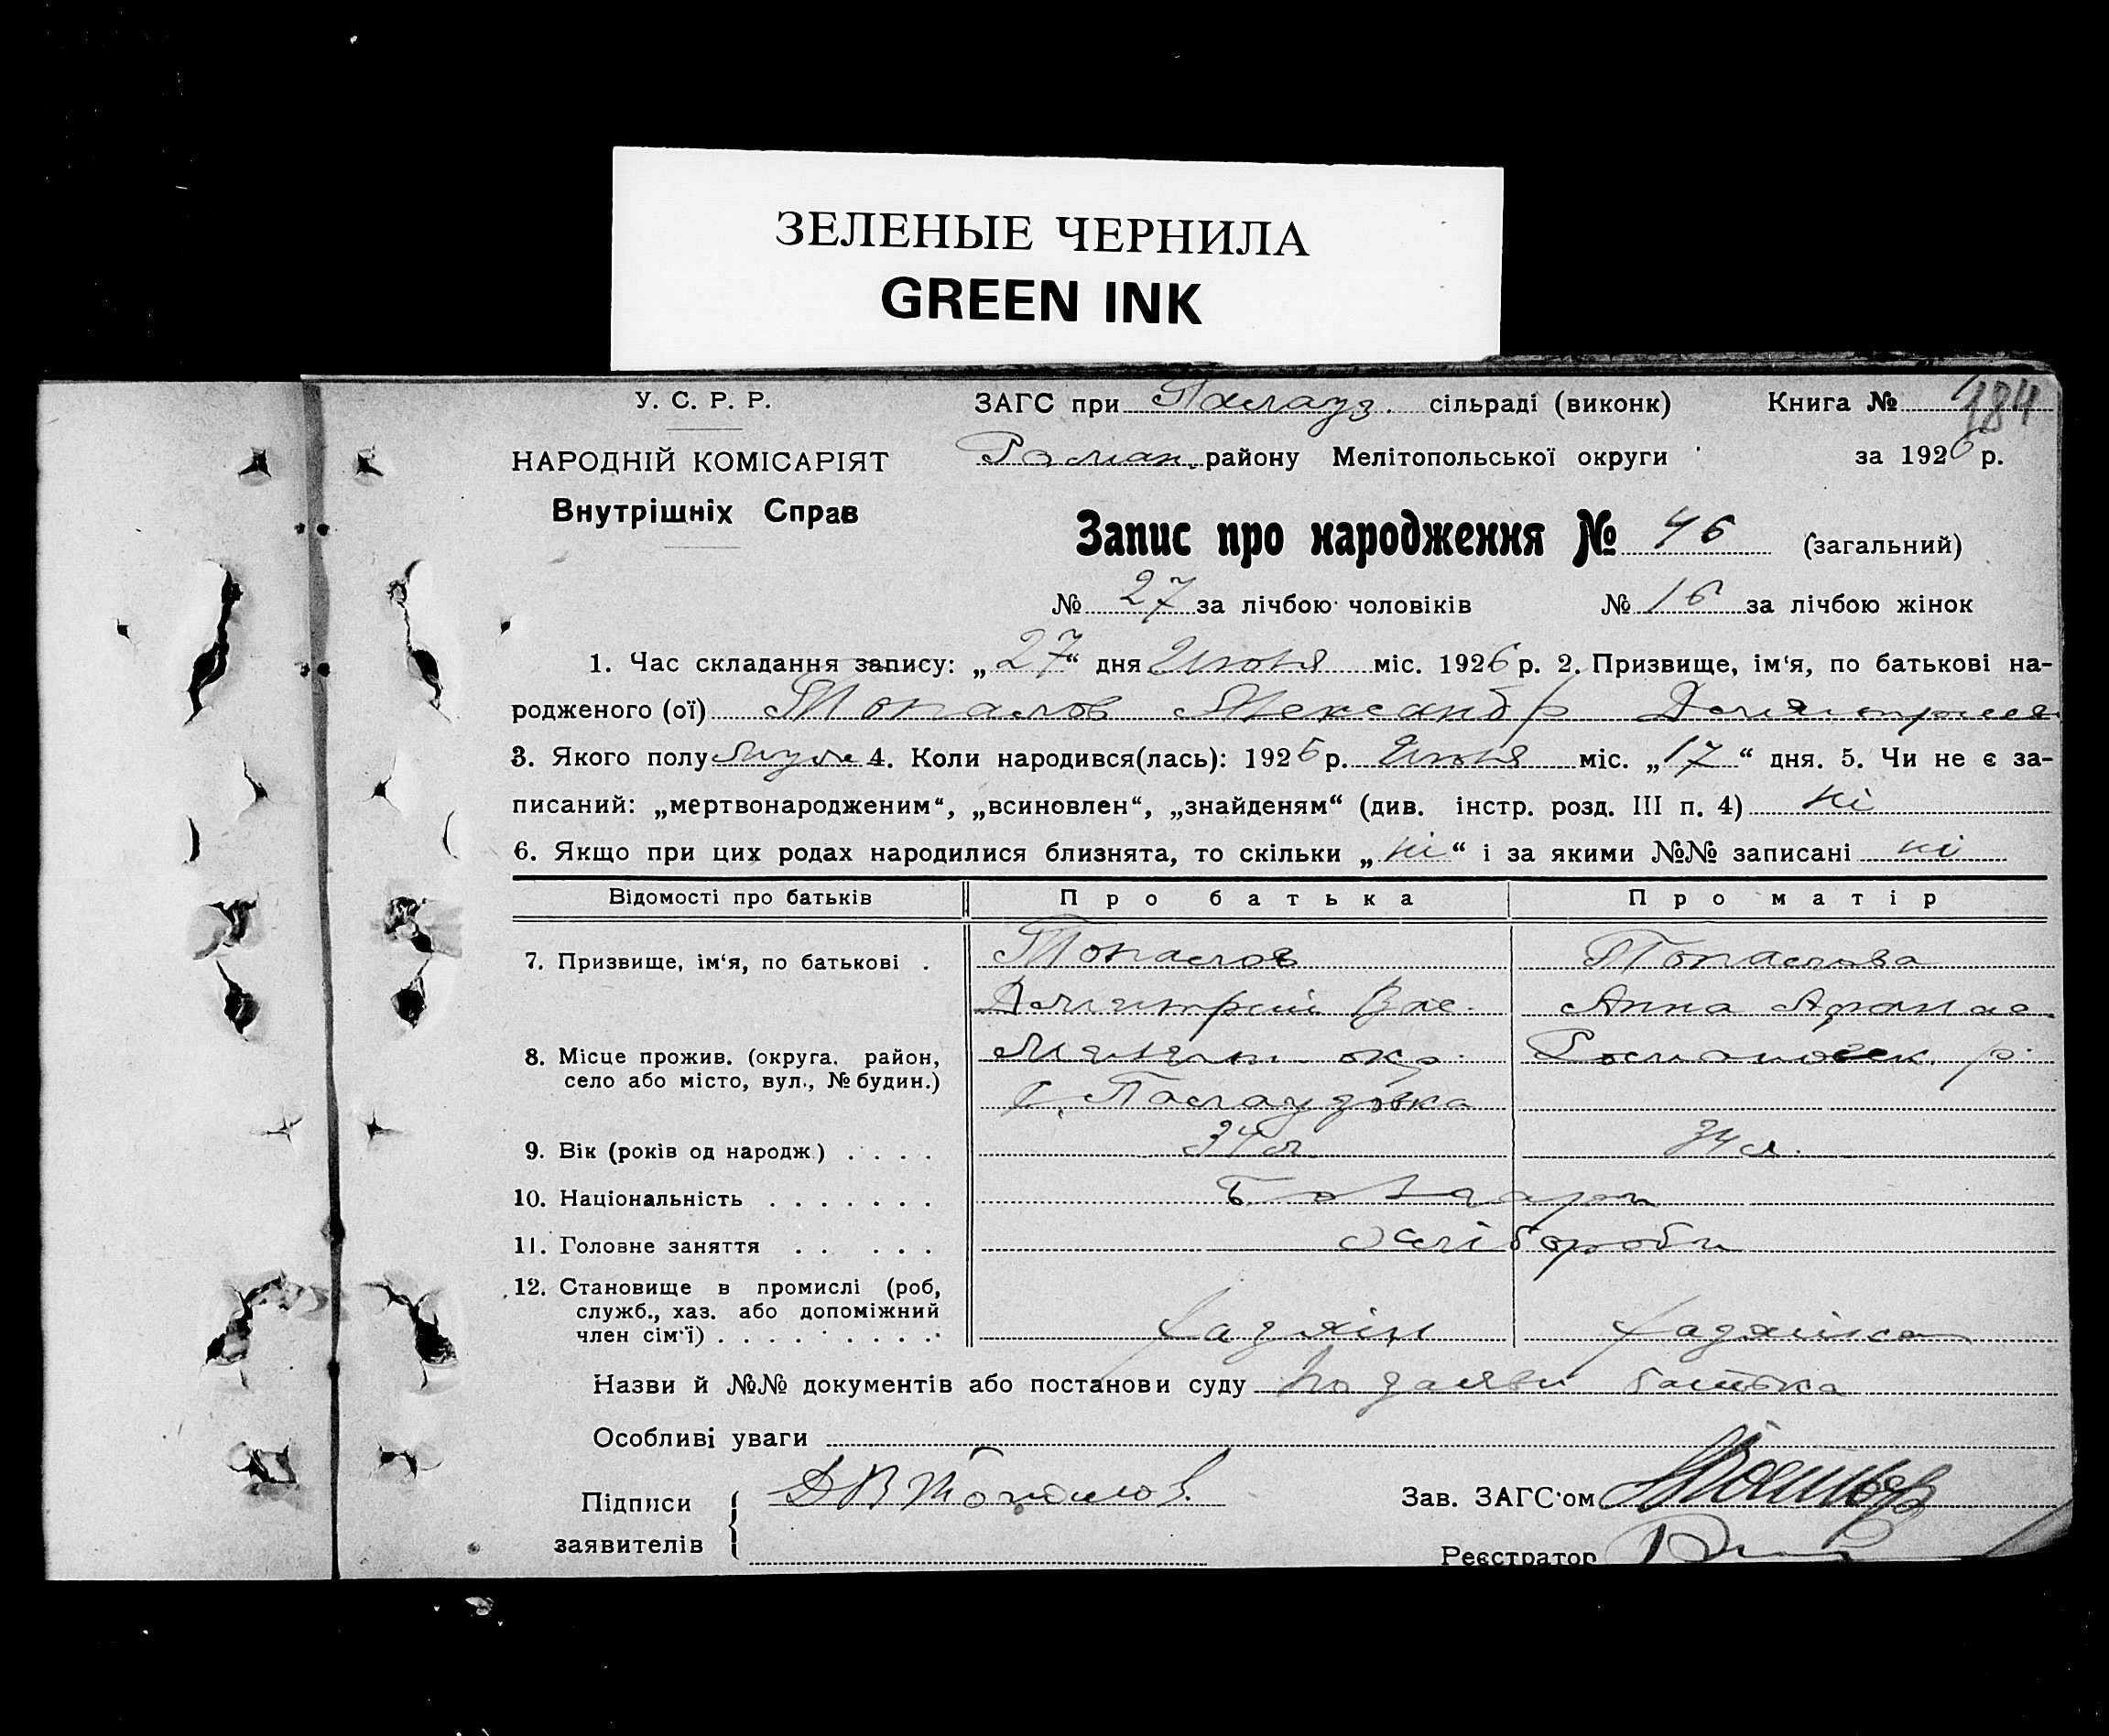 ЗЕЛЕНЫЕ ЧЕРНИЛА
GREEN INK
У. С. Р. Р. ЗАГС при сільраді (виконк) Книга № 184
НАРОДНІЙ КОМІСАРІЯТ Роман. району Мелітопольської округи за 1926 р.
Внутрішніх Справ
Запис про народження № 46 (загальний)
№ 27 за лічбою чоловіків № 16 за лічбою жінок
1. Час складання запису: „27“ дня Июня міс. 1926 р. 2. Призвище, ім‘я, по батькові на-
родженого (ої) Топалов Александр
3. Якого полу 4. Коли народився(лась): 1926 р. Июня міс. „17“ дня. 5. Чи не є за-
писаний: „мертвонародженим“, „всиновлен“, „знайденям“ (див. інстр. розд. III п. 4) ні
6. Якщо при цих родах народилися близнята, то скільки „ні“ і за якими №№ записані ні
Відомості про батьків Про батька Про матір
7. Призвище, ім‘я, по батькові . Топалов Топалова
Дмитрий Вас. Анна Афанас.
8. Місце прожив. (округа, район, окр. р.
село або місто, вул., № будин.)
9. Вік (років од народж.) . . . . 34 л. 34 л.
10. Національність . . . . . . . Болгари
11. Головне заняття . . . . . Хлібороби
12. Становище в промислі (роб,
служб., хаз. або допоміжний
член сім‘ї) . . . . . . . . . хазяїн хазяйка
Назви й №№ документів або постанови суду по заяви батька
Особливі уваги
Підписи Д В Топалов. Зав. ЗАГС‘ом
заявителів
Реєстратор